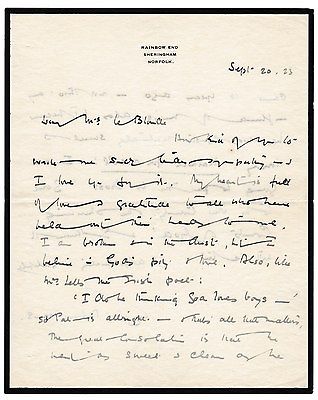 RAINBOW END
SHERINGHAM
NORFOLK.
Sept 20. 23
Dear Mrs le Blond
kind of you to
write me such sympathy —
I love you for it. My heart is full
of love & gratitude to all who have
held out their hands to me.
I am broken in the dust, but I
believe in God's pity Also, like
Mrs the Irish poet:
"I do be thinking God loves boys —"
so is allright. — that's all that matters,
The great consolation is that he
as sweet & clean as he